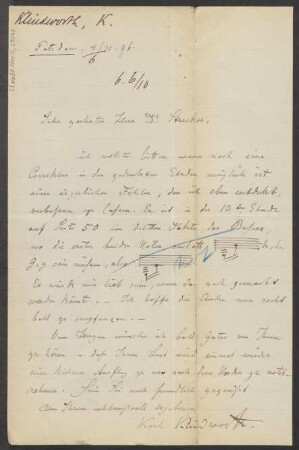 Klindworth, K.
Potsdam. 4/10 96.
6
6. 6/10
Sehr geehrter Herr Dr Strecker,
ich möchte bitten wenn noch eine
Correktur in den gedruckten Etuden möglich ist
einen Fehler, den ich eben entdeckt,
verbessern zu lassen. Es ist in der 12ten Etude
auf Seite 50 im dritten Takte des Basses,
wo die ersten beiden Noten statt
g, g sein müssen, also
Es würde mir lieb sein, wenn das noch gemacht
werden könnte. — Ich hoffe die Etuden nun recht
bald zu empfangen. —
Von Herzen wünsche ich bald Gutes von Ihnen
zu hören u. daß Ihnen Lust wird einmal wieder
eine kleine Ausflug zu uns nach dem Norden zu unter-
nehmen. Sein Sie auch freundlich gegrüßt
von Ihrem
Karl Klindworth.